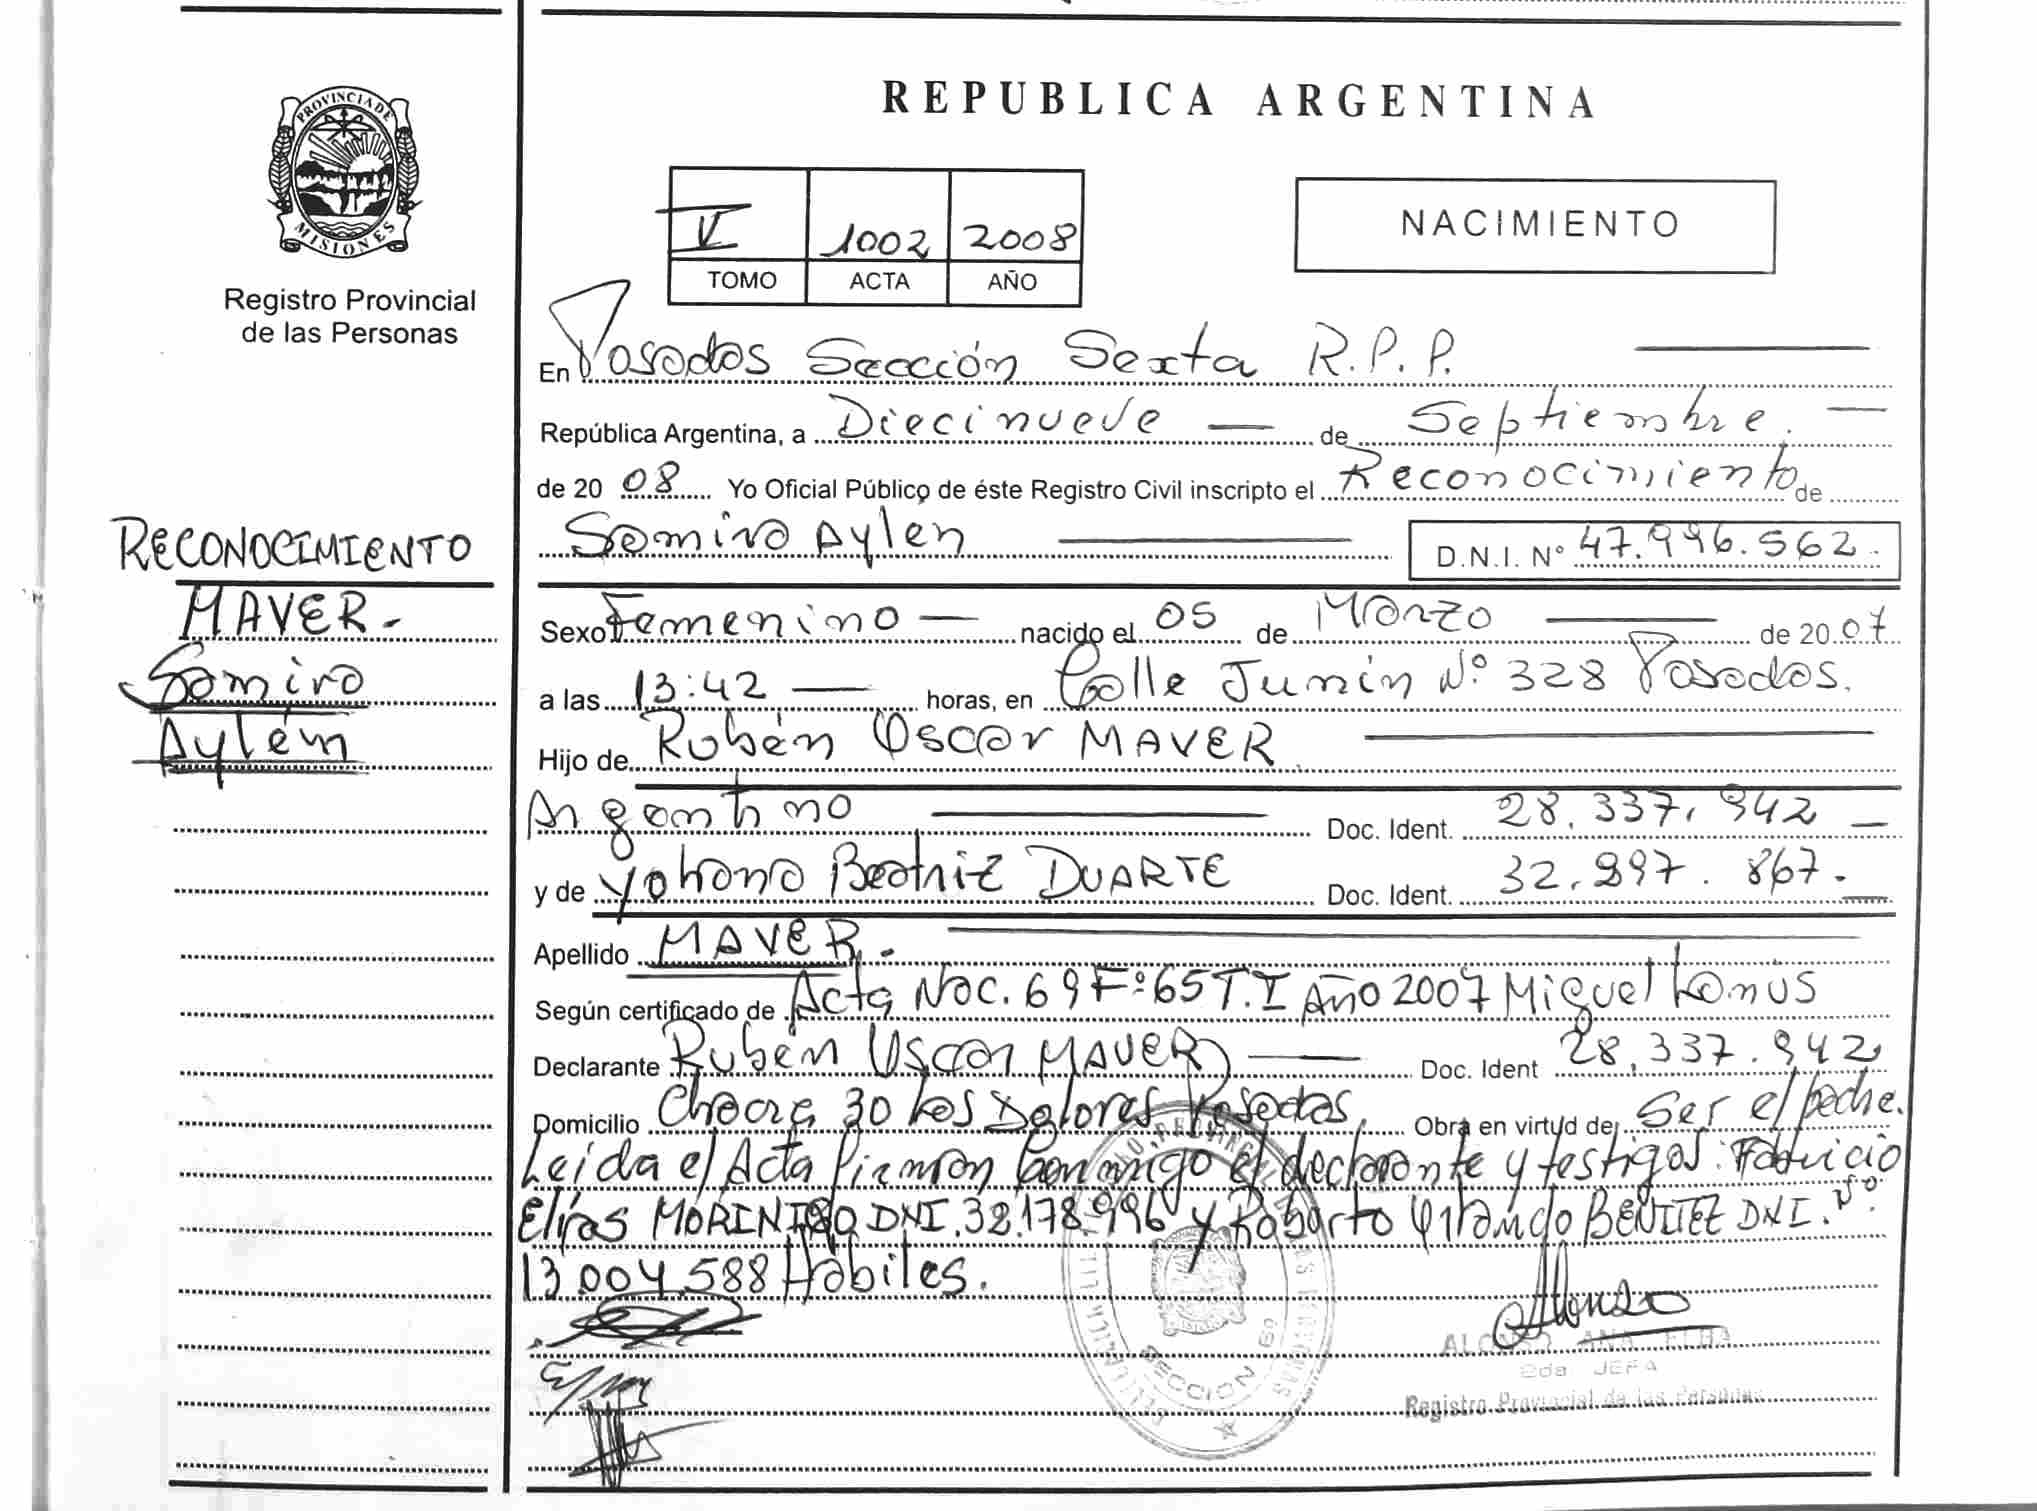 REPUBLICA ARGENTINA
PROVINCIA DE MISIONES
Registro Provincial
de las Personas
V 1002 2008
TOMO ACTA AÑO
NACIMIENTO
En Posadas Sección Sexta R.P.P.
República Argentina, a Diecinueve de Septiembre.
de 20 08 Yo Oficial Público de éste Registro Civil inscripto el Reconocimiento de
Samira Aylén D.N.I. Nº 47.996.562.
RECONOCIMIENTO
MAVER.
Samira
Aylém
Sexo Femenino nacido el 05 de Marzo de 2007
a las 13:42 horas, en Calle Junín Nº 328 Posadas.
Hijo de Rubén Oscar MAVER
Argentino Doc. Ident. 28.337.942
y de Yohana Beatriz DUARTE Doc. Ident. 32.897.867.
Apellido MAVER.
Según certificado de Acta Nac. 69 Fº 65 T.I Año 2007 Miguel Lanús
Declarante Rubén Oscar MAVER Doc. Ident 28.337.942
Domicilio Chacra 30 Los Dolores Posadas. Obra en virtud de Ser el padre.
Leída el Acta firman conmigo el declarante y testigos: Fabricio
Elías MORINIGO DNI.32.178.996 y Roberto Orlando BENITEZ DNI.Nº
13.004.588 Hábiles.
ALONSO ANA ELBA
2da JEFA
Registro Provincial de las Personas
SECCION 6ª